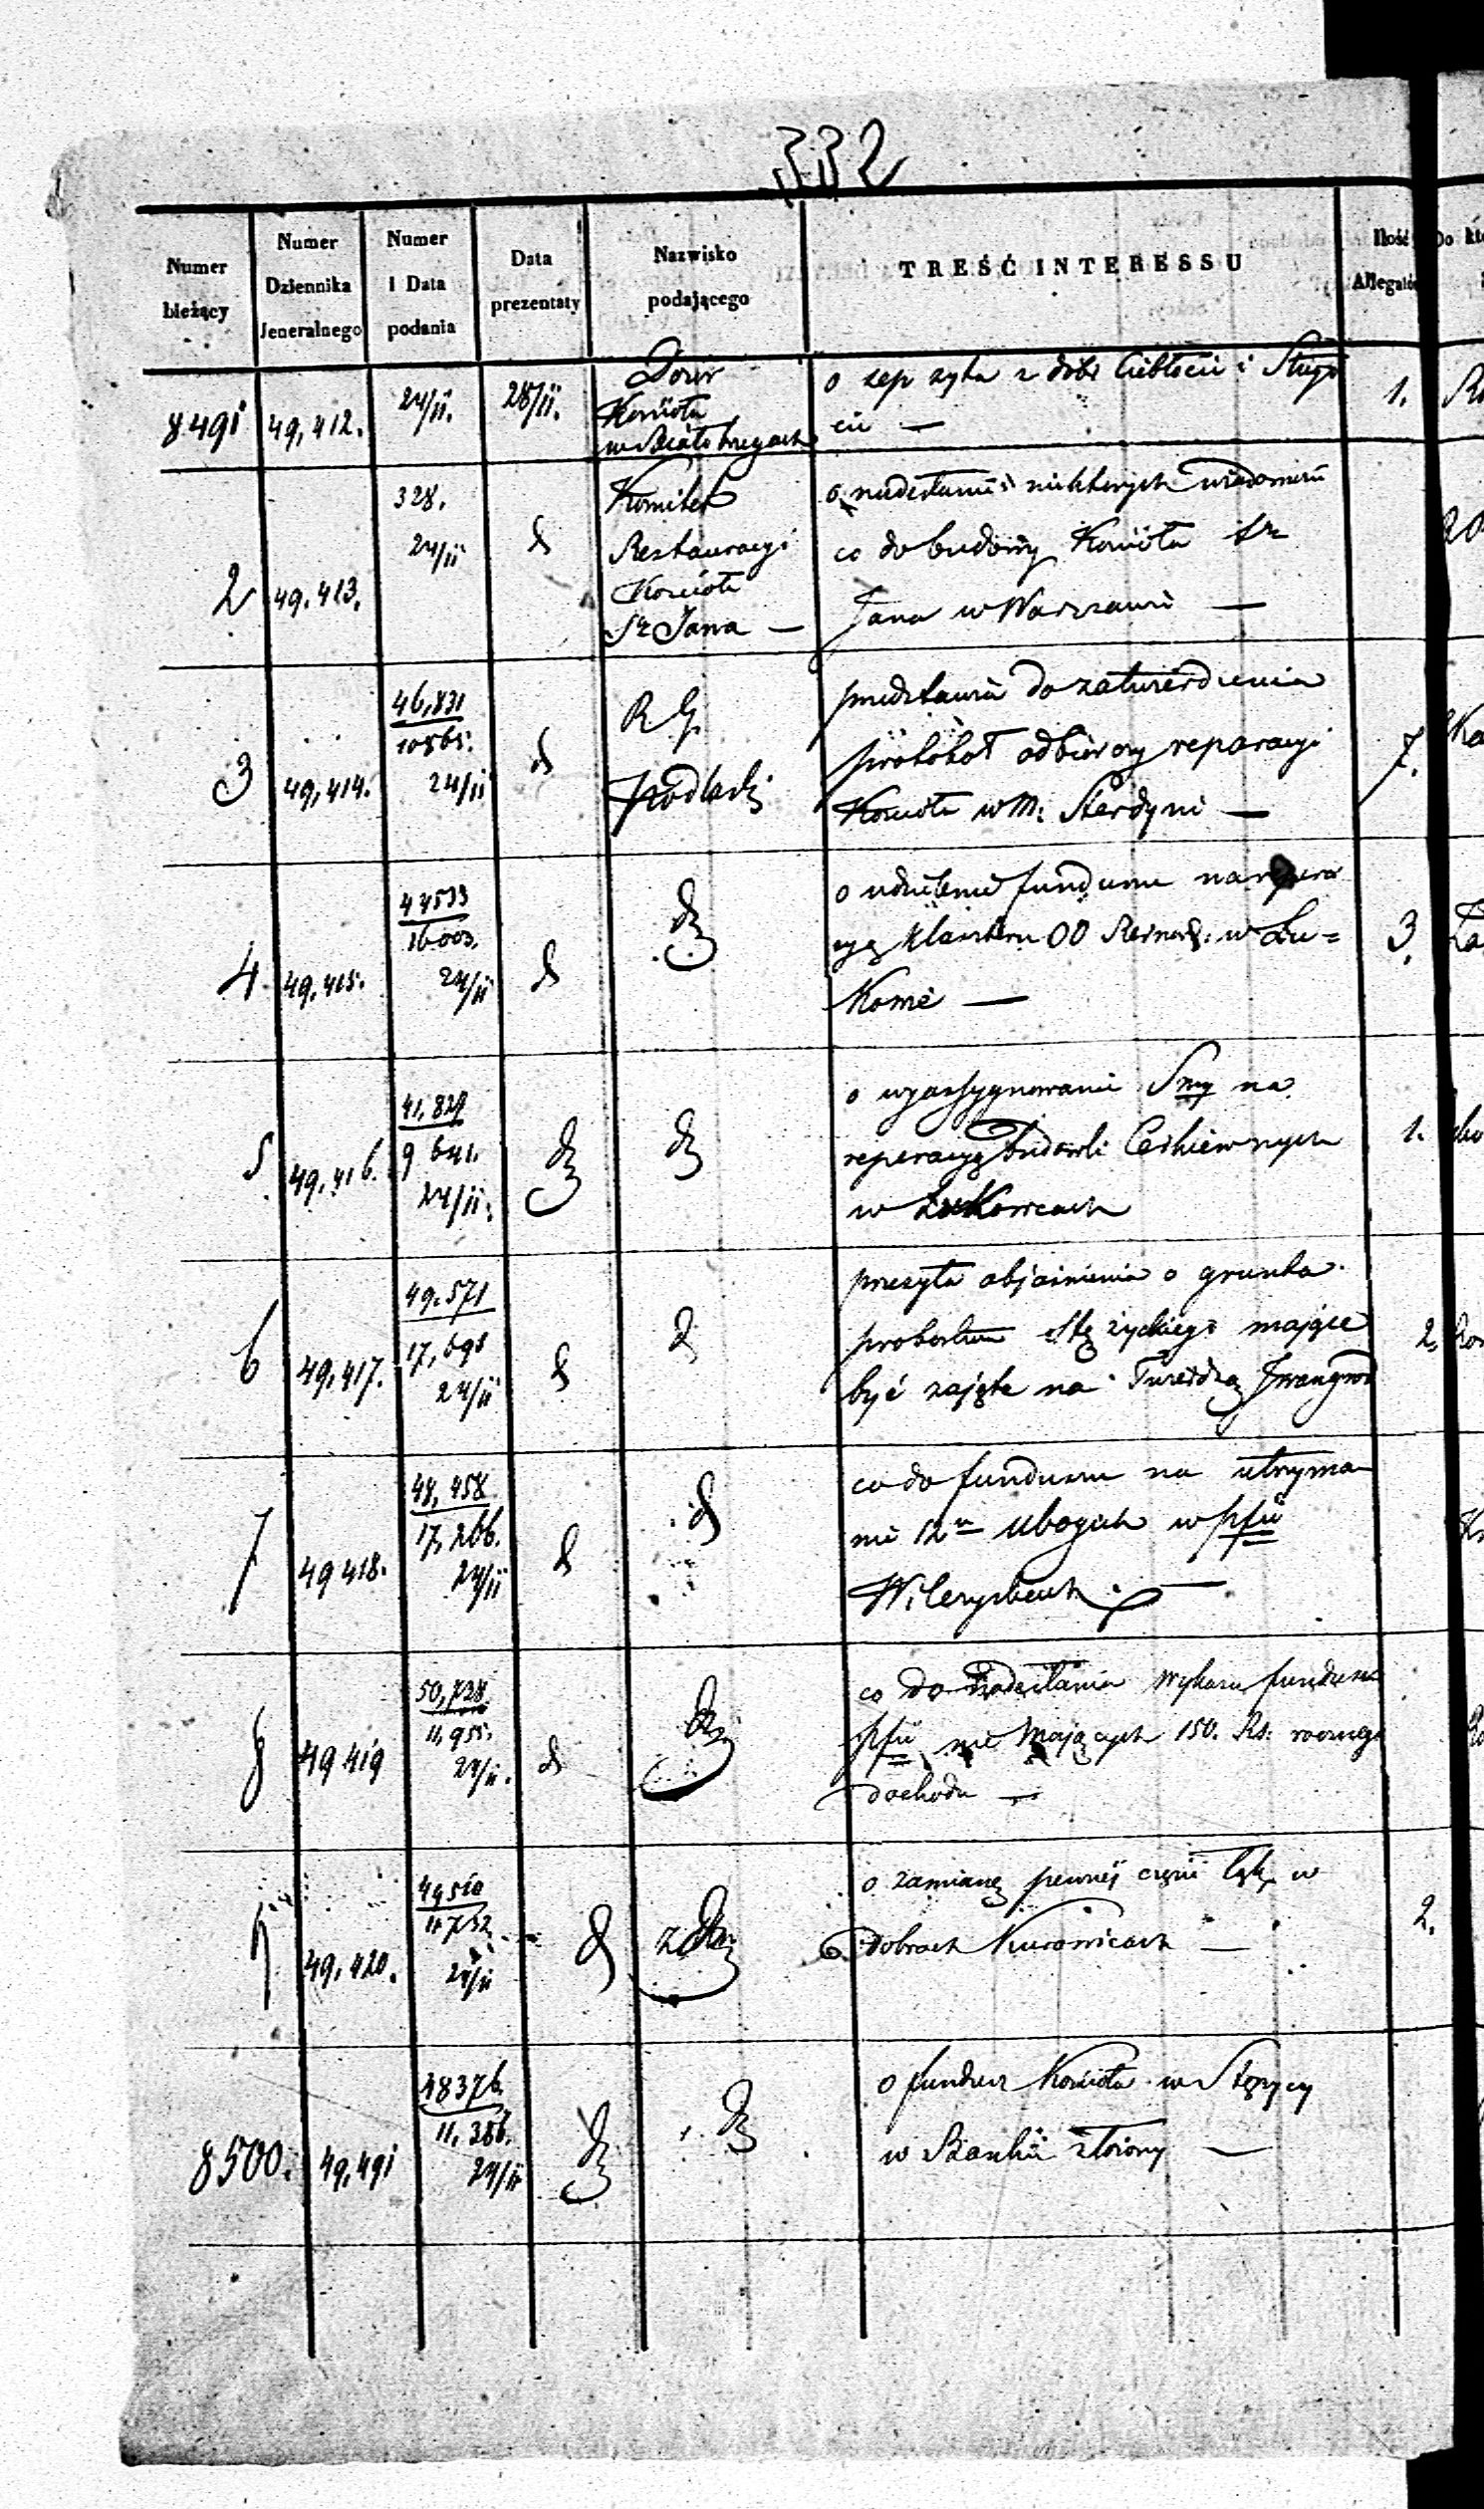 332
Numer bieżący
Numer Dziennika Jeneralnego
Numer i Data podania
Data prezentaty
Nazwisko podającego
TREŚĆ INTERESSU
Ilość Allegatów
Do
8491 49,412. 24/11. 28/11. Dozór o sep zyta z dóbr i 1.
Kościoła
w Białobrzegach
2 49,413. 328. 24/11 Komitet o nadesłanie niektórych wiadomości
Restauracyi co do budowy Kościoła
Kościoła Jana w Warszawie —
Sgo Jana —
3 49,414. 46,831 10865. 24/11 R G. przedstawia do zatwierdzenia 7.
Podlaski protokół odbiorczy reparacyi
Kościoła w M: Sterdyni —
4 49,415. 16003. 24/11 o udzielenie funduszu na repera 3.
cyę Klasztoru OO Bernard: w Łu=
kowie —
5 49,416. 41,829 9641. 24/11. o wyassygnowanie Smy na 1.
reperacyę budowli Cerkiewnych
w Łukowcach
6 49,417. 49.571 17,698 24/11 przesyła objaśnienia o grunta 2.
probostwa Stężyckiego mające
być zajęte na Twierdzę Iwangrod
7 49418. 48,458. 17,266. 24/11 co do funduszu na utrzyma
nie 12u ubogich w pfii
8 49419 50,728. 11,955. 24/11. co do nadesłania wykazu fundusz
pfii nie mających 150. Rs: rocznego
dochodu —
9 49,420. 49510 11752 24/11 o zamianę pewnéj części łąk w 2.
dobrach Kurowicach —
8500. 49,491 48376. 11,386. 24/11 o fundusz Kościoła w Stężycy
w Banku złożony —